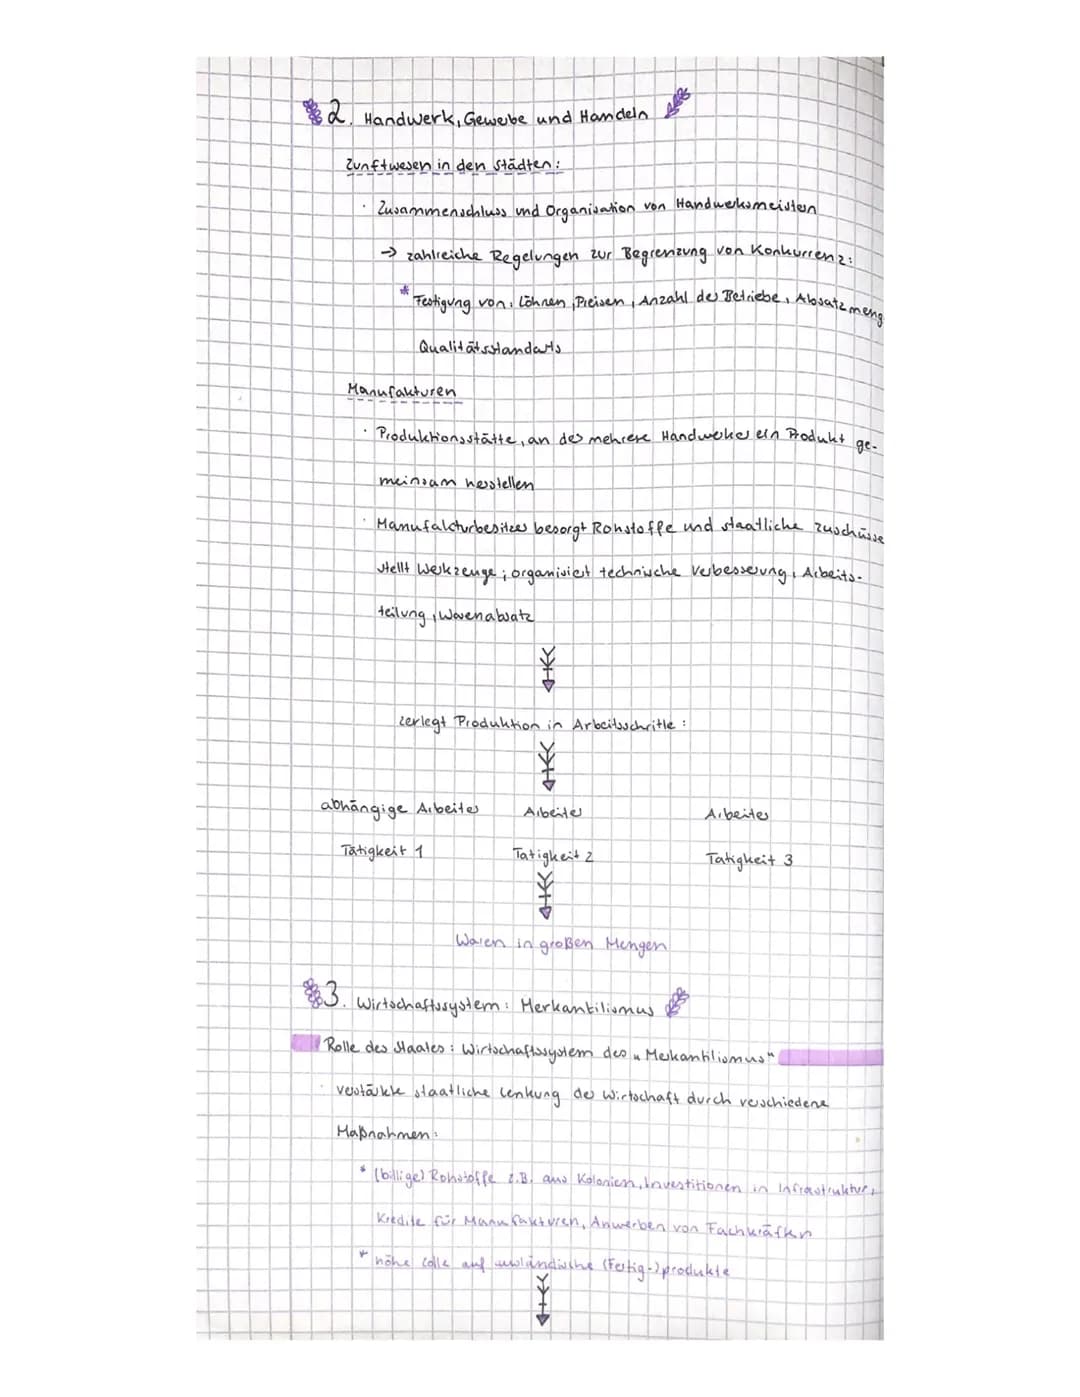 2. Handwerk, Gewerbe und Handeln
Zunftwesen in den Städten:
· Zusammenschluss und Organisation von Handwerksmeistern
→ zahlreiche Regelungen zur Begrenzung von Konkurrenz:
* Festigung von: Löhnen, Preisen, Anzahl der Betriebe, Absatzmeng
Qualitätsstandarts
Manufakturen
· Produktionsstätte, an der mehrere Handwerker ein Produkt ge-
meinsam herstellen
· Manufakturbesitzer besorgt Rohstoffe und staatliche Zuschüsse
stellt Werkzeuge; organisiert technische Verbesserung, Arbeits-
teilung, Warenabsatz
zerlegt Produktion in Arbeitsschritte:
abhängige Arbeiter Arbeiter Arbeiter
Tätigkeit 1 Tatigkeit 2 Tatigkeit 3
Waren in großen Mengen
3. Wirtschaftssystem: Merkantilismus
Rolle des Staates: Wirtschaftssystem des „Merkantilismus"
· verstärkte staatliche Lenkung der Wirtschaft durch verschiedene
Maßnahmen:
* (billige) Rohstoffe z.B. aus Kolonien, Investitionen in Infrastruktur,
Kredite für Manufakturen, Anwerben von Fachkräften
* hohe Zölle auf ausländische (Fertig-)produkte